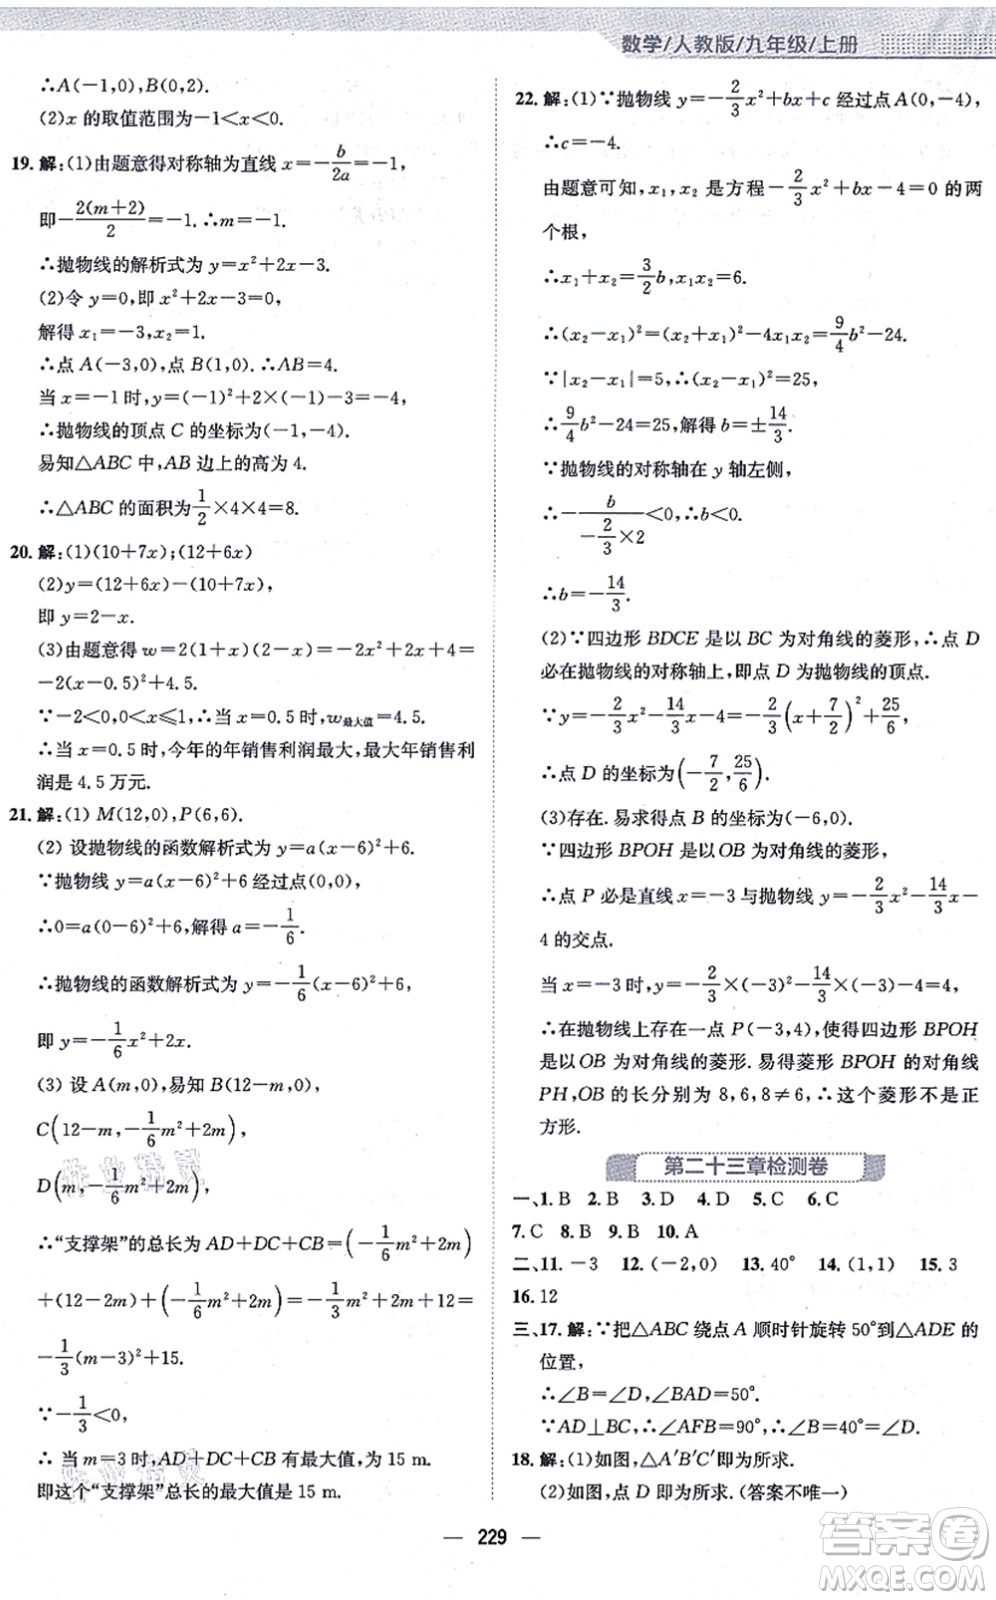 数学/人教版/九年级/上册
∴A(-1,0),B(0,2).
(2)x 的取值范围为-1<x<0.
19. 解:(1)由题意得对称轴为直线 x=-b/2a=-1,
即-2(m+2)/2=-1. ∴m=-1.
∴抛物线的解析式为 y=x²+2x-3.
(2)令 y=0,即 x²+2x-3=0,
解得 x₁=-3,x₂=1.
∴点 A(-3,0),点 B(1,0). ∴AB=4.
当 x=-1时,y=(-1)²+2×(-1)-3=-4,
∴抛物线的顶点 C 的坐标为(-1,-4).
易知△ABC 中,AB 边上的高为 4.
∴△ABC 的面积为1/2×4×4=8.
20. 解:(1)(10+7x);(12+6x)
(2)y=(12+6x)-(10+7x),
即 y=2-x.
(3)由题意得 w=2(1+x)(2-x)=-2x²+2x+4=
-2(x-0.5)²+4.5.
∵-2<0,0<x≤1,∴当 x=0.5时,w最大值=4.5.
∴当 x=0.5时,今年的年销售利润最大,最大年销售利
润是 4.5 万元.
21. 解:(1) M(12,0),P(6,6).
(2) 设抛物线的函数解析式为 y=a(x-6)²+6.
∵抛物线 y=a(x-6)²+6 经过点(0,0),
∴0=a(0-6)²+6,解得 a=-1/6.
∴抛物线的函数解析式为 y=-1/6(x-6)²+6,
即 y=-1/6x²+2x.
(3) 设 A(m,0),易知 B(12-m,0),
C(12-m,-1/6m²+2m),
D(m,-1/6m²+2m),
∴“支撑架”的总长为 AD+DC+CB=(-1/6m²+2m)
+(12-2m)+(-1/6m²+2m)=-1/3m²+2m+12=
-1/3(m-3)²+15.
∵-1/3<0,
∴ 当 m=3时,AD+DC+CB 有最大值,为 15 m.
即这个“支撑架”总长的最大值是 15 m.
22. 解:(1)∵抛物线 y=-2/3x²+bx+c 经过点 A(0,-4),
∴c=-4.
由题意可知,x₁,x₂ 是方程-2/3x²+bx-4=0 的两
个根,
∴x₁+x₂=3/2b,x₁x₂=6.
∴(x₂-x₁)²=(x₂+x₁)²-4x₁x₂=9/4b²-24.
∵|x₂-x₁|=5,∴(x₂-x₁)²=25,
∴9/4b²-24=25,解得 b=±14/3.
∵抛物线的对称轴在 y 轴左侧,
∴-b/(-2/3×2)<0,∴b<0.
∴b=-14/3.
(2)∵四边形 BDCE 是以 BC 为对角线的菱形,∴点 D
必在抛物线的对称轴上,即点 D 为抛物线的顶点.
∵y=-2/3x²-14/3x-4=-2/3(x+7/2)²+25/6,
∴点 D 的坐标为(-7/2,25/6).
(3)存在. 易求得点 B 的坐标为(-6,0).
∵四边形 BPOH 是以 OB 为对角线的菱形,
∴点 P 必是直线 x=-3 与抛物线 y=-2/3x²-14/3x-
4 的交点.
当 x=-3时,y=-2/3×(-3)²-14/3×(-3)-4=4,
∴在抛物线上存在一点 P(-3,4),使得四边形 BPOH
是以 OB 为对角线的菱形. 易得菱形 BPOH 的对角线
PH,OB 的长分别为 8,6,8≠6,∴这个菱形不是正
方形.
第二十三章检测卷
一、1. B 2. B 3. D 4. D 5. C 6. C
7. C 8. B 9. B 10. A
二、11. -3 12. (-2,0) 13. 40° 14. (1,1) 15. 3
16. 12
三、17. 解:∵把△ABC 绕点 A 顺时针旋转 50°到△ADE 的
位置,
∴∠B=∠D,∠BAD=50°.
∵AD⊥BC,∴∠AFB=90°,∴∠B=40°=∠D.
18. 解:(1)如图,△A′B′C′即为所求.
(2)如图,点 D 即为所求.(答案不唯一)
— 229 —
答案卷
MXQE.COM
作业精灵
作业精灵